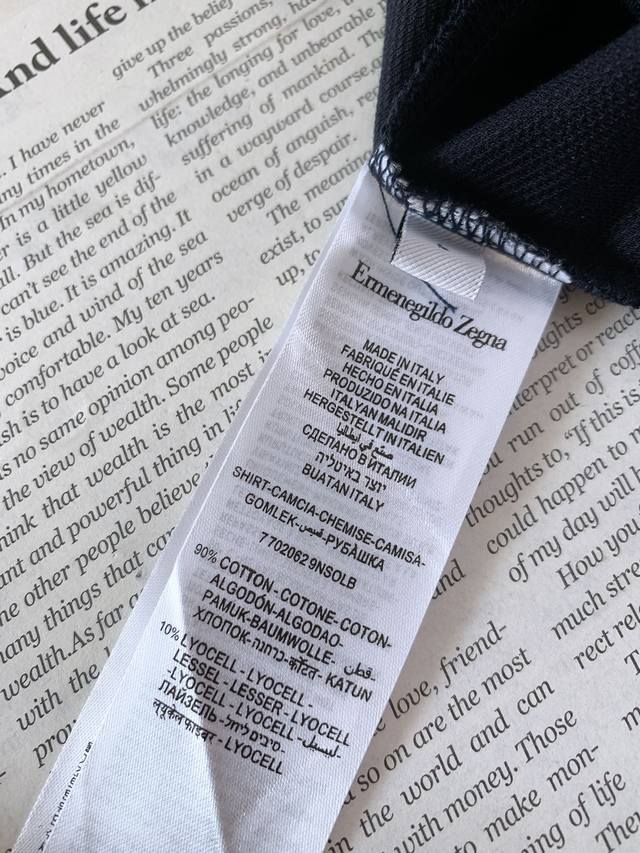 And life
give up the belief
Three passions,
whelmingly strong, ha
life: the longing for love, t
knowledge, and unbearable p
suffering of mankind. Th
in a wayward course,
ocean of anguish, re
verge of despair.
The meaning
exist, to su
up, to
... I have never
ny times in the
In my hometown,
r is a little yellow
ll. But the sea is dif-
can't see the end of the
is blue. It is amazing. It
voice and wind of the sea
comfortable. My ten years
sh is to have a look at sea.
is no same opinion among peo-
the view of wealth. Some people
hink that wealth is the most i
nt and powerful thing in li
he other people believe
many things that can
wealth.As far a
with the
pro
Ermenegildo Zegna
MADE IN ITALY
FABRIQUÉ EN ITALIE
HECHO EN ITALIA
PRODUZIDO NA ITALIA
ITALYAN MALIDIR
HERGESTELLT IN ITALIEN
صنع في إيطاليا
СДЕЛАНО В ИТАЛИИ
יוצר באיטליה
BUATAN ITALY
SHIRT-CAMCIA-CHEMISE-CAMISA-
GOMLEK-قميص-РУБÀШКА
7702062 9NSOLB
90% COTTON - COTONE- COTON-
ALGODÓN-ALGODAO-
PAMUK-BAUMWOLLE- قطن-
ХЛОПОК-כותנה-कॉटन- KATUN
10% LYOCELL - LYOCELL -
LESSEL - LESSER- LYOCELL
-LYOCELL - LYOCELL -ليسيل-
ЛАЙЗЕЛЬ - LYOCELL
लyूसेल फाइबर - LYOCELL
oughts co
terpret or reac
run out of coff
thoughts to, "If this is
could happen to m
of my day will
How you
much stre
rect rel
and
love, friend-
so on are the most
in the world and can
with money. Those
to make mon-
ning of life